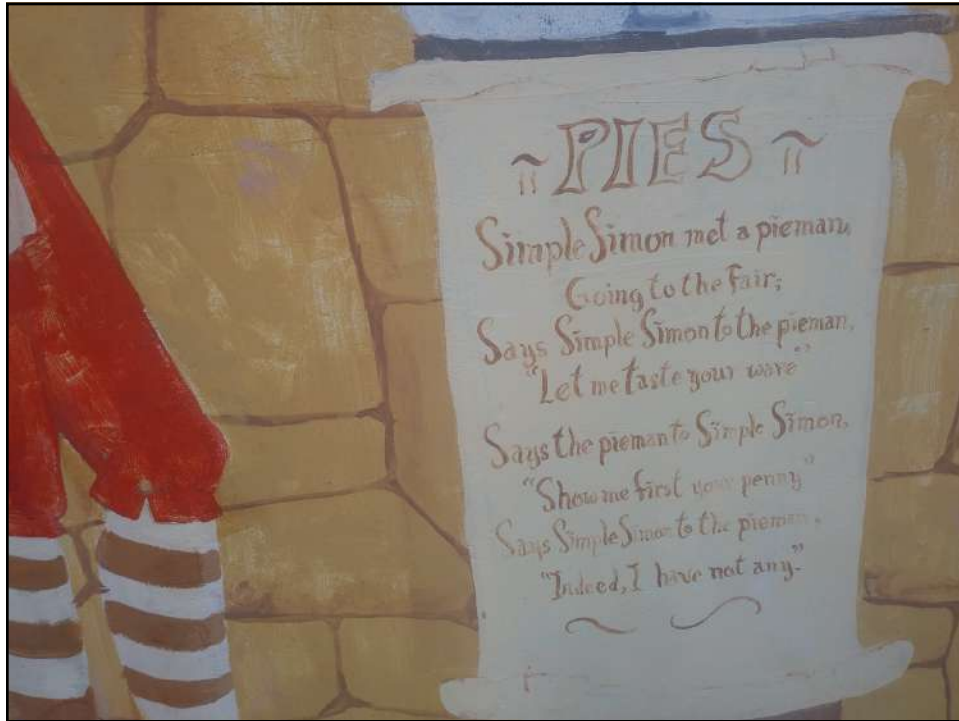 PIES
Simple Simon met a pieman,
Going to the Fair;
Says Simple Simon to the pieman,
"Let me taste your ware"
Says the pieman to Simple Simon,
"Show me first your penny"
Says Simple Simon to the pieman,
"Indeed, I have not any."